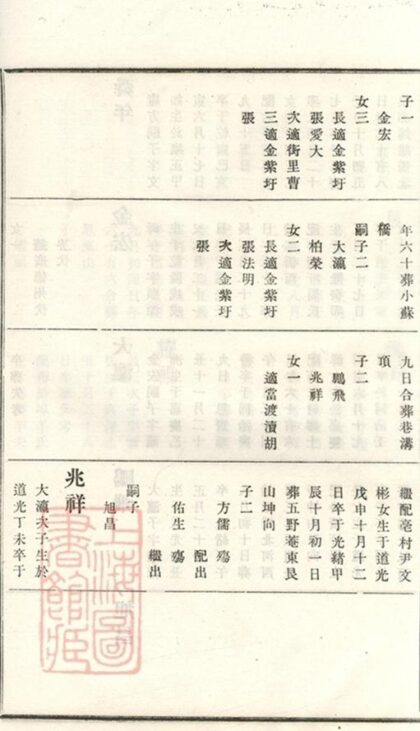 子一
金宏
女三
長適金紫圩
張愛大
次適街里曹
三適金紫圩
張
年六十葬小蘇
橋
嗣子二
大瀛
柏榮
女二
長適金紫圩
張法明
次適金紫圩
張
九日合葬巷溝
項
子二
鵬飛
兆祥
女一
適當渡瀆胡
繼配亳村尹文
彬女生于道光
戊申十月十二
日卒于光緒甲
辰十月初一日
葬五野菴東艮
山坤向
子二
方儒殤
配出
佑生殤
繼出
嗣子
旭昌
兆祥
大瀛次子生於
道光丁未卒于
上海圖
書館藏